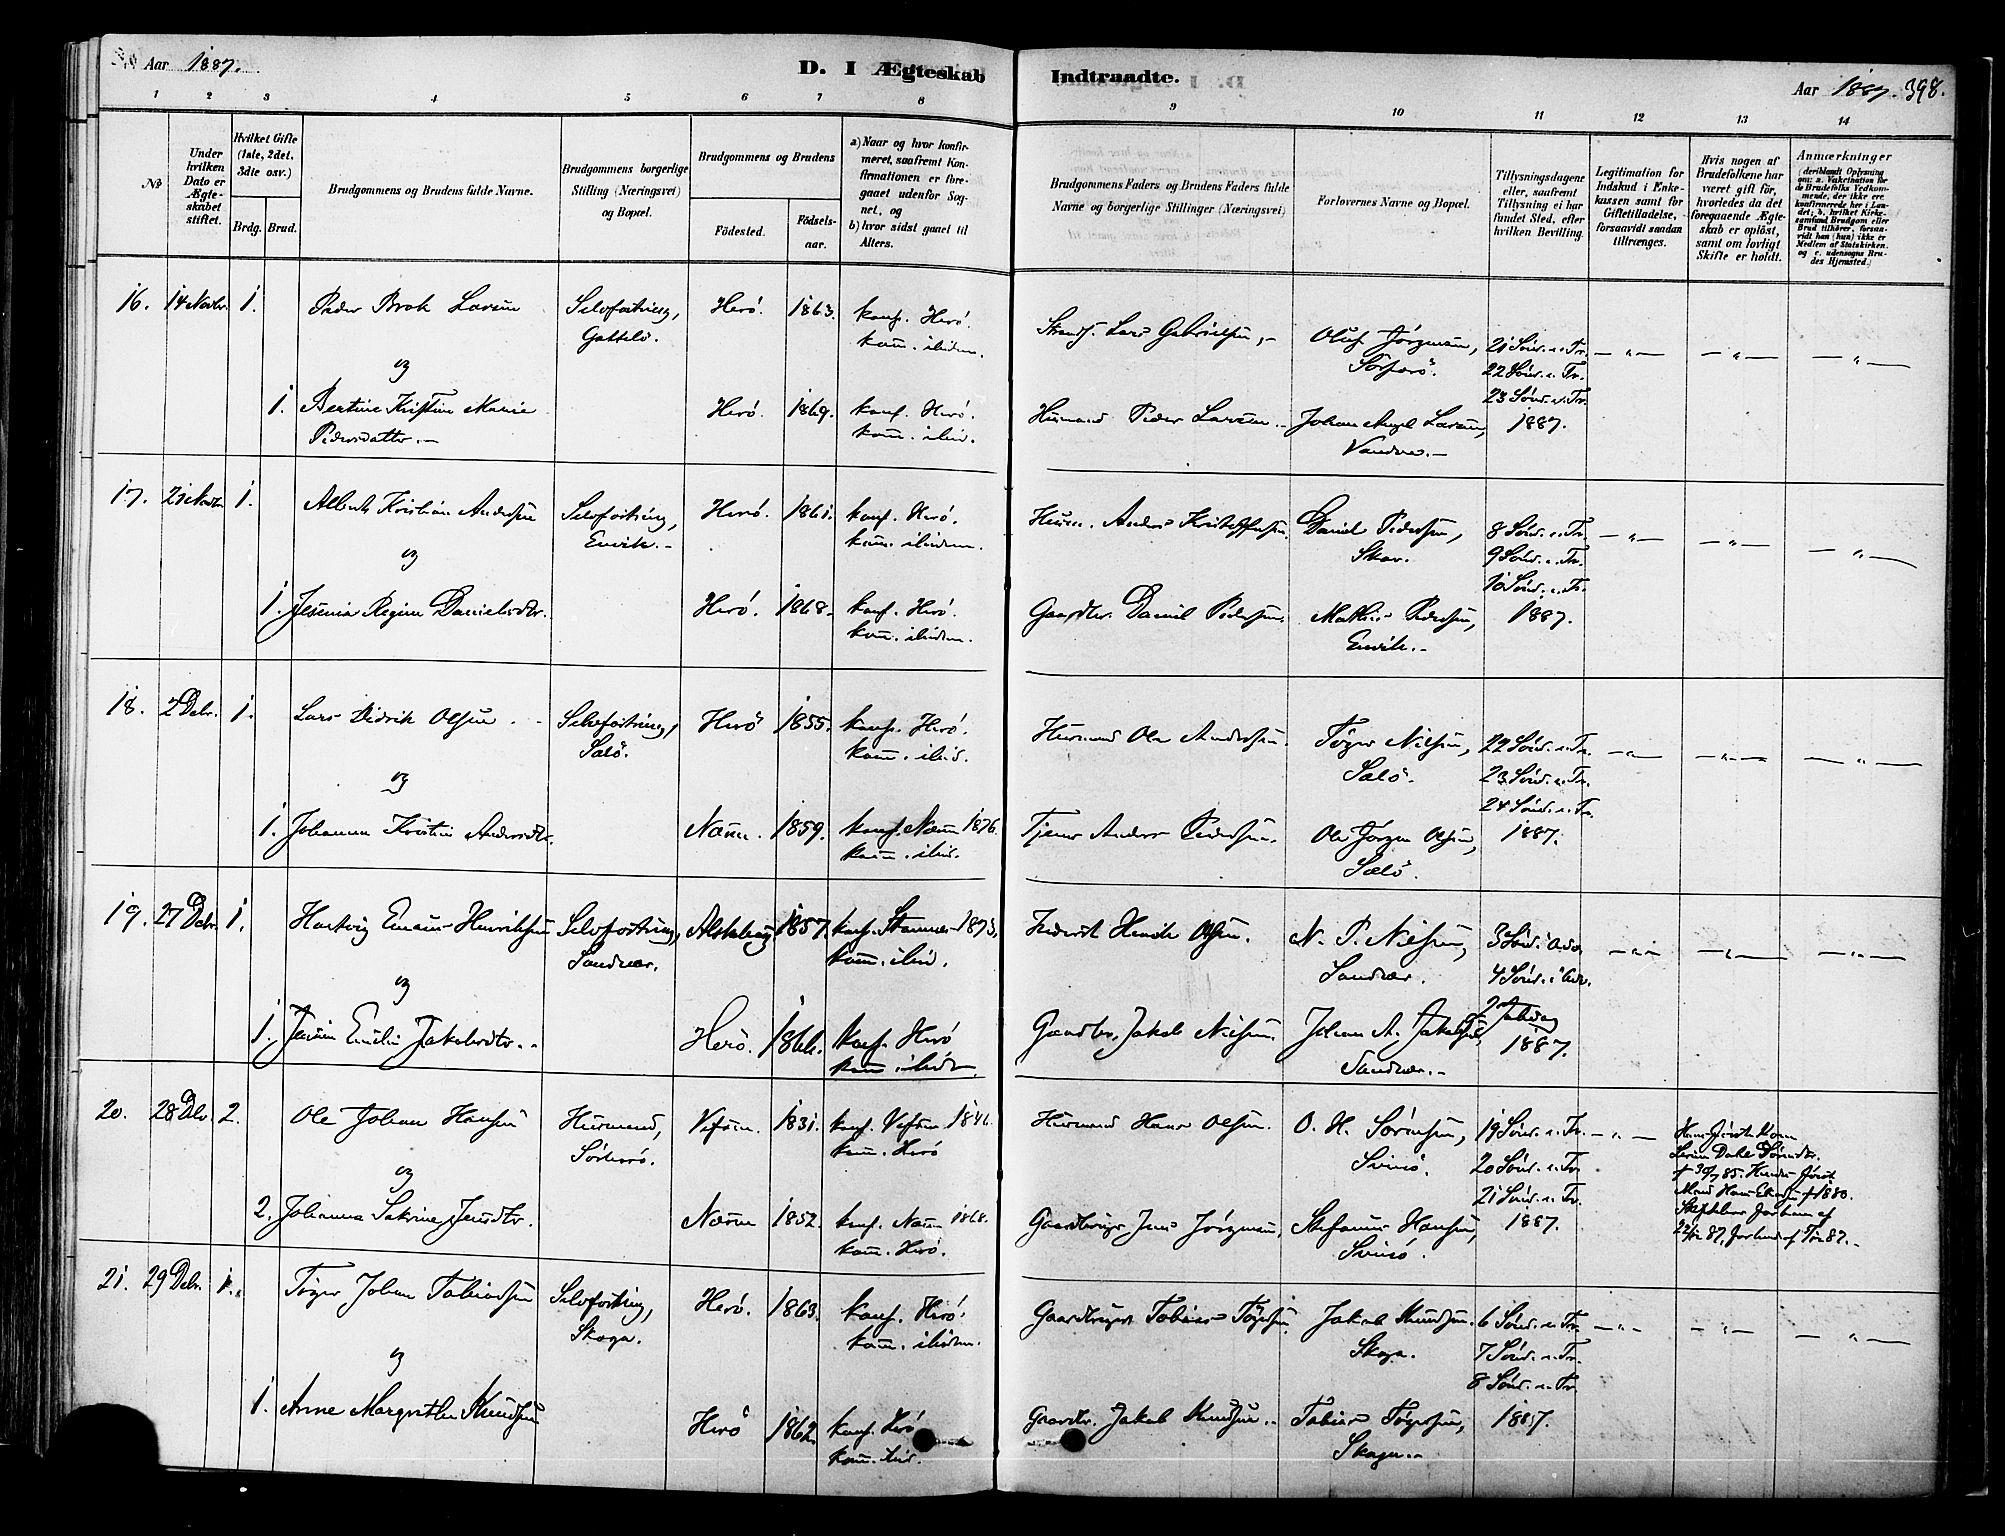 Aar 1887.
D. I Ægteskab
Indtraadte.
Aar 1887. 398.
1 2 3 4 5 6 7 8 9 10 11 12 13 14
№
Under hvilken Dato er Ægteskabet stiftet.
Hvilket Gifte (1ste, 2det, 3dte osv.)
Brdg. Brud.
Brudgommens og Brudens fulde Navne.
Brudgommens borgerlige Stilling (Næringsvei) og Bopæl.
Brudgommens og Brudens
Födested.
Födselsaar.
a) Naar og hvor konfirmeret, saafremt Konfirmationen er foregaaet udenfor Sognet, og
b) hvor sidst gaaet til Alters.
Brudgommens Faders og Brudens Faders fulde Navne og borgerlige Stillinger (Næringsvei)
Forlovernes Navne og Bopæl.
Tillysningsdagene eller, saafremt Tillysning ei har fundet Sted, efter hvilken Bevilling.
Legitimation for Indskud i Enkekassen samt for Giftetilladelse, forsaavidt saadan tiltrænges.
Hvis nogen af Brudefolkene har været gift för, hvorledes da det foregaaende Ægteskab er oplöst, samt om lovligt Skifte er holdt.
Anmærkninger (deriblandt Oplysning om: a. Vakcination for de Brudefolks Vedkommende, der ikke ere konfirmerede her i Landet; b. hvilket Kirkesamfund Brudgom eller Brud tilhörer, forsaavidt han (hun) ikke er Medlem af Statskirken. og c. udensogns Brudes Hjemsted.)
16. 14 Novbr. 1. Peder Brok Larsen Selvfostring, Herö. 1863. konf. Herö. Strands. Lars Gabrielsen,- Oluf Jörgensen, 21 Sönd. e. Tr. — " — — " — — " —
Gatselö. kom. ibidem. Sörherö. 22 Sönd. e. Tr.
og 23 Sönd. e. Tr.
1. Bertine Kristine Marie Herö. 1869. konf. Herö. Husmand Peder Larsen.- Johan Larsen, 1887.
Pedersdatter.- kom. ibid.
17. 21 Novbr. 1. Albert Kristian Andersen Selvfostring, Herö. 1861. konf. Herö. Husm. Anders Kristoffersen Daniel Pedersen, 8 Sönd. e. Tr. — " — — " — — " —
Envik.- kom. ibidem. Skar. 9 Sönd. e. Tr.
og 10 Sönd. e. Tr.
1. Jesenia Regine Danielsdtr. Herö. 1868. konf. Herö. Gaardbr. Daniel Pedersen. Mathis Pedersen, 1887.
kom. ibidem. Envik.-
18. 2 Debr. 1. Lars Didrik Olsen Selvfostring, Herö 1855. konf. Herö. Husmand Ole Andersen. Töger Nielsen, 22 Sönd. e. Tr. — " — — " — — " —
Salö. kom. ibid. Salö. 23 Sönd. e. Tr.
og 24 Sönd. e. Tr.
1. Johanna Kristine Andersdtr. Næsne. 1859. konf. Næsne 1876. Tjener Anders Pedersen. Ole Jörgen Olsen, 1887.
kom. ibid. Salö.
19. 27 Debr. 1. Hartvig Henriksen Selvfostring, Alstahaug 1857. konf. Stamnes 1873. Henrik Olsen. N. P. Nielsen, 3 Sönd. i Adv. — " — — " — — " —
Sandvær. kom. ibid. Sandvær. 4 Sönd. i Adv.
og 2 Juledag
1. Emilie Jakobsdtr.- Herö. 1866. konf. Herö Gaardbr. Jakob Nielsen. Johan A. Jakobsen, 1887.
kom. ibidem. Sandvær.-
20. 28 Debr. 2. Ole Johan Hansen Husmand, Vefsen. 1831. konf. Vefsen 1846. Husmand Hans Olsen. O. H. Sörensen, 19 Sönd. e. Tr. — " — Hans förste Kone
Sörherö. kom. Herö Svinö. 20 Sönd. e. Tr.
og 21 Sönd. e. Tr.
2. Johanna Sakrine Jensdtr. Næsne 1852. konf. Næsne 1868. Gaardbruger Jens Jörgensen, Stefanus Hansen, 1887.
kom. Herö. Svinö.
21. 29 Debr. 1. Töger Johan Tobiassen Selvfostring, Herö. 1863. konf. Herö. Gaardbruger Tobias Tögersen. Jakob Knudsen. 6 Sönd. e. Tr. — " — — " — — " —
Skaga. kom. ibidem. Skaga. 7 Sönd. e. Tr.
og 8 Sönd. e. Tr.
1. Anne Margrethe Knudsen Herö 1862. konf. Herö Gaardbr. Jakob Knudsen.- Tobias Tögersen, 1887.
kom. ibid. Skaga.-